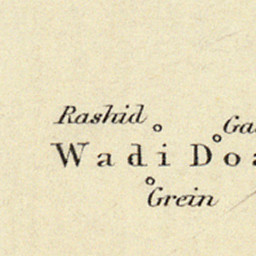 Rashid
Ga
Wadi Doa
Grein